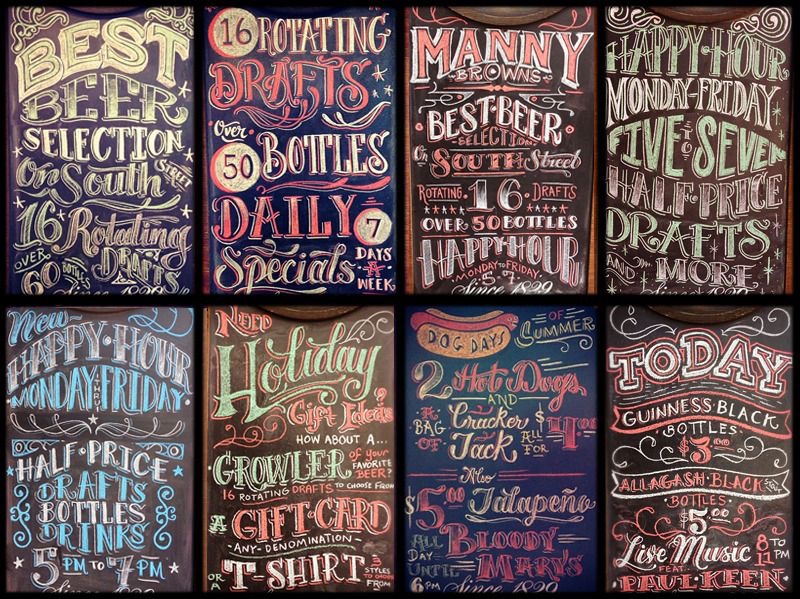 BEST
BEER
SELECTION
On South STREET
16 Rotating
DRAFTS
OVER
60 BOTTLES
Since 1829
16 ROTATING
DRAFTS
Over
50 BOTTLES
DAILY 7
DAYS
A
WEEK
Specials
MANNY
BROWNS
BEST·BEER
SELECTION
On SOUTH Street
ROTATING 16 DRAFTS
OVER 50 BOTTLES
HAPPY·HOUR
MONDAY TO FRIDAY
5 - 7
Since 1829
HAPPY·HOUR
MONDAY-FRIDAY
FIVE TO SEVEN
HALF PRICE
DRAFTS
AND MORE
Since 1829
New
HAPPY·HOUR
MONDAY THRU FRIDAY
HALF·PRICE
DRAFTS
BOTTLES
DRINKS
5 PM TO 7 PM
Since 1829
NEED
Holiday
Gift Ideas?
HOW ABOUT A...
GROWLER of your FAVORITE BEER?
16 ROTATING DRAFTS TO CHOOSE FROM
A GIFT·CARD
-ANY-DENOMINATION-
OR A T-SHIRT 3 STYLES TO CHOOSE FROM
Since 1829
DOG DAYS OF SUMMER
2 Hot Dogs
AND
A BAG OF Cracker Jack ALL FOR $4.00
Also
$5.00 Jalapeño
ALL DAY UNTIL 6 PM BLOODY MARY'S
Since 1829
TODAY
GUINNESS BLACK
BOTTLES
$3.00
ALLAGASH BLACK
BOTTLES
$5.00
Live Music 8 TO 11 PM
FEAT.
PAUL KEEN